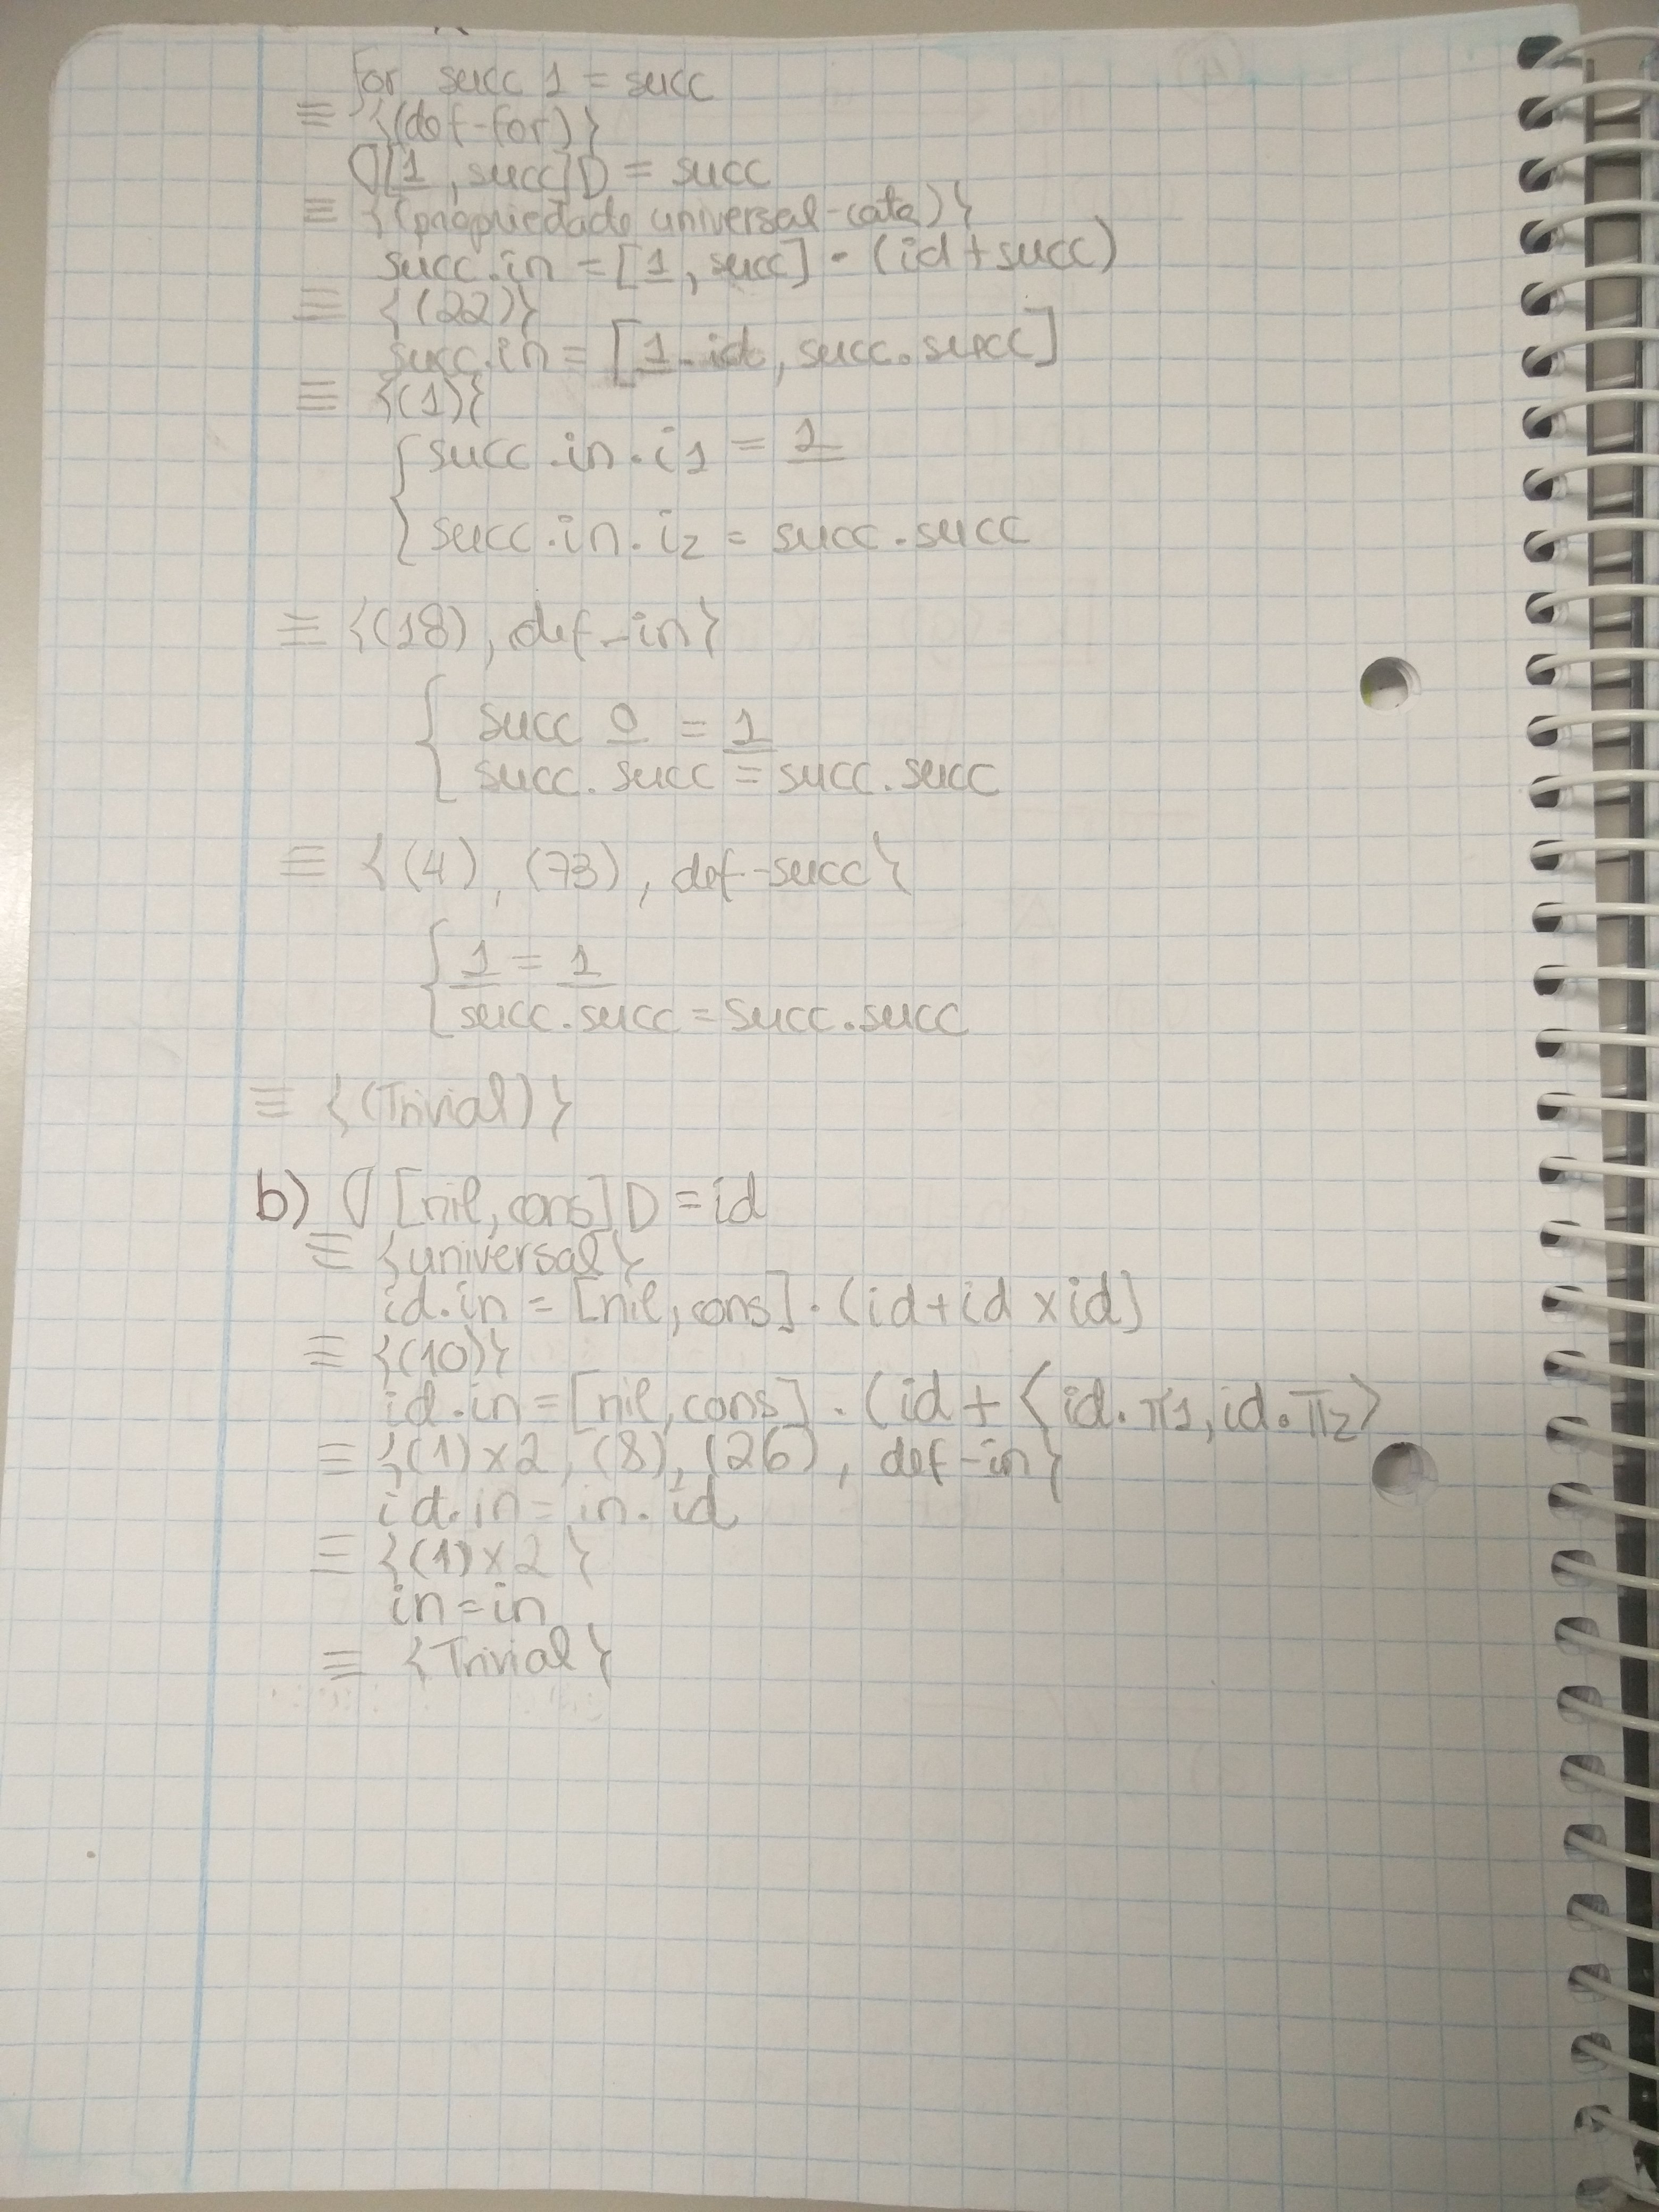 for succ 1 = succ
≡ {(def-for)}
⦇[1, succ]⦈ = succ
≡ {(propriedade universal-cata)}
succ.in = [1, succ] · (id + succ)
≡ {(22)}
succ.in = [1.id, succ.succ]
≡ {(1)}
{ succ.in.i1 = 1
{ succ.in.i2 = succ.succ
≡ {(18), def-in}
{ succ 0 = 1
{ succ.succ = succ.succ
≡ {(4), (73), def-succ}
{ 1 = 1
{ succ.succ = succ.succ
≡ {(Trivial)}
b) ⦇[nil, cons]⦈ = id
≡ {universal}
id.in = [nil, cons] · (id + id × id)
≡ {(10)}
id.in = [nil, cons] · (id + ⟨id.π1, id.π2⟩
≡ {(1)×2, (8), (26), def-in}
id.in = in.id
≡ {(1)×2}
in = in
≡ {Trivial}